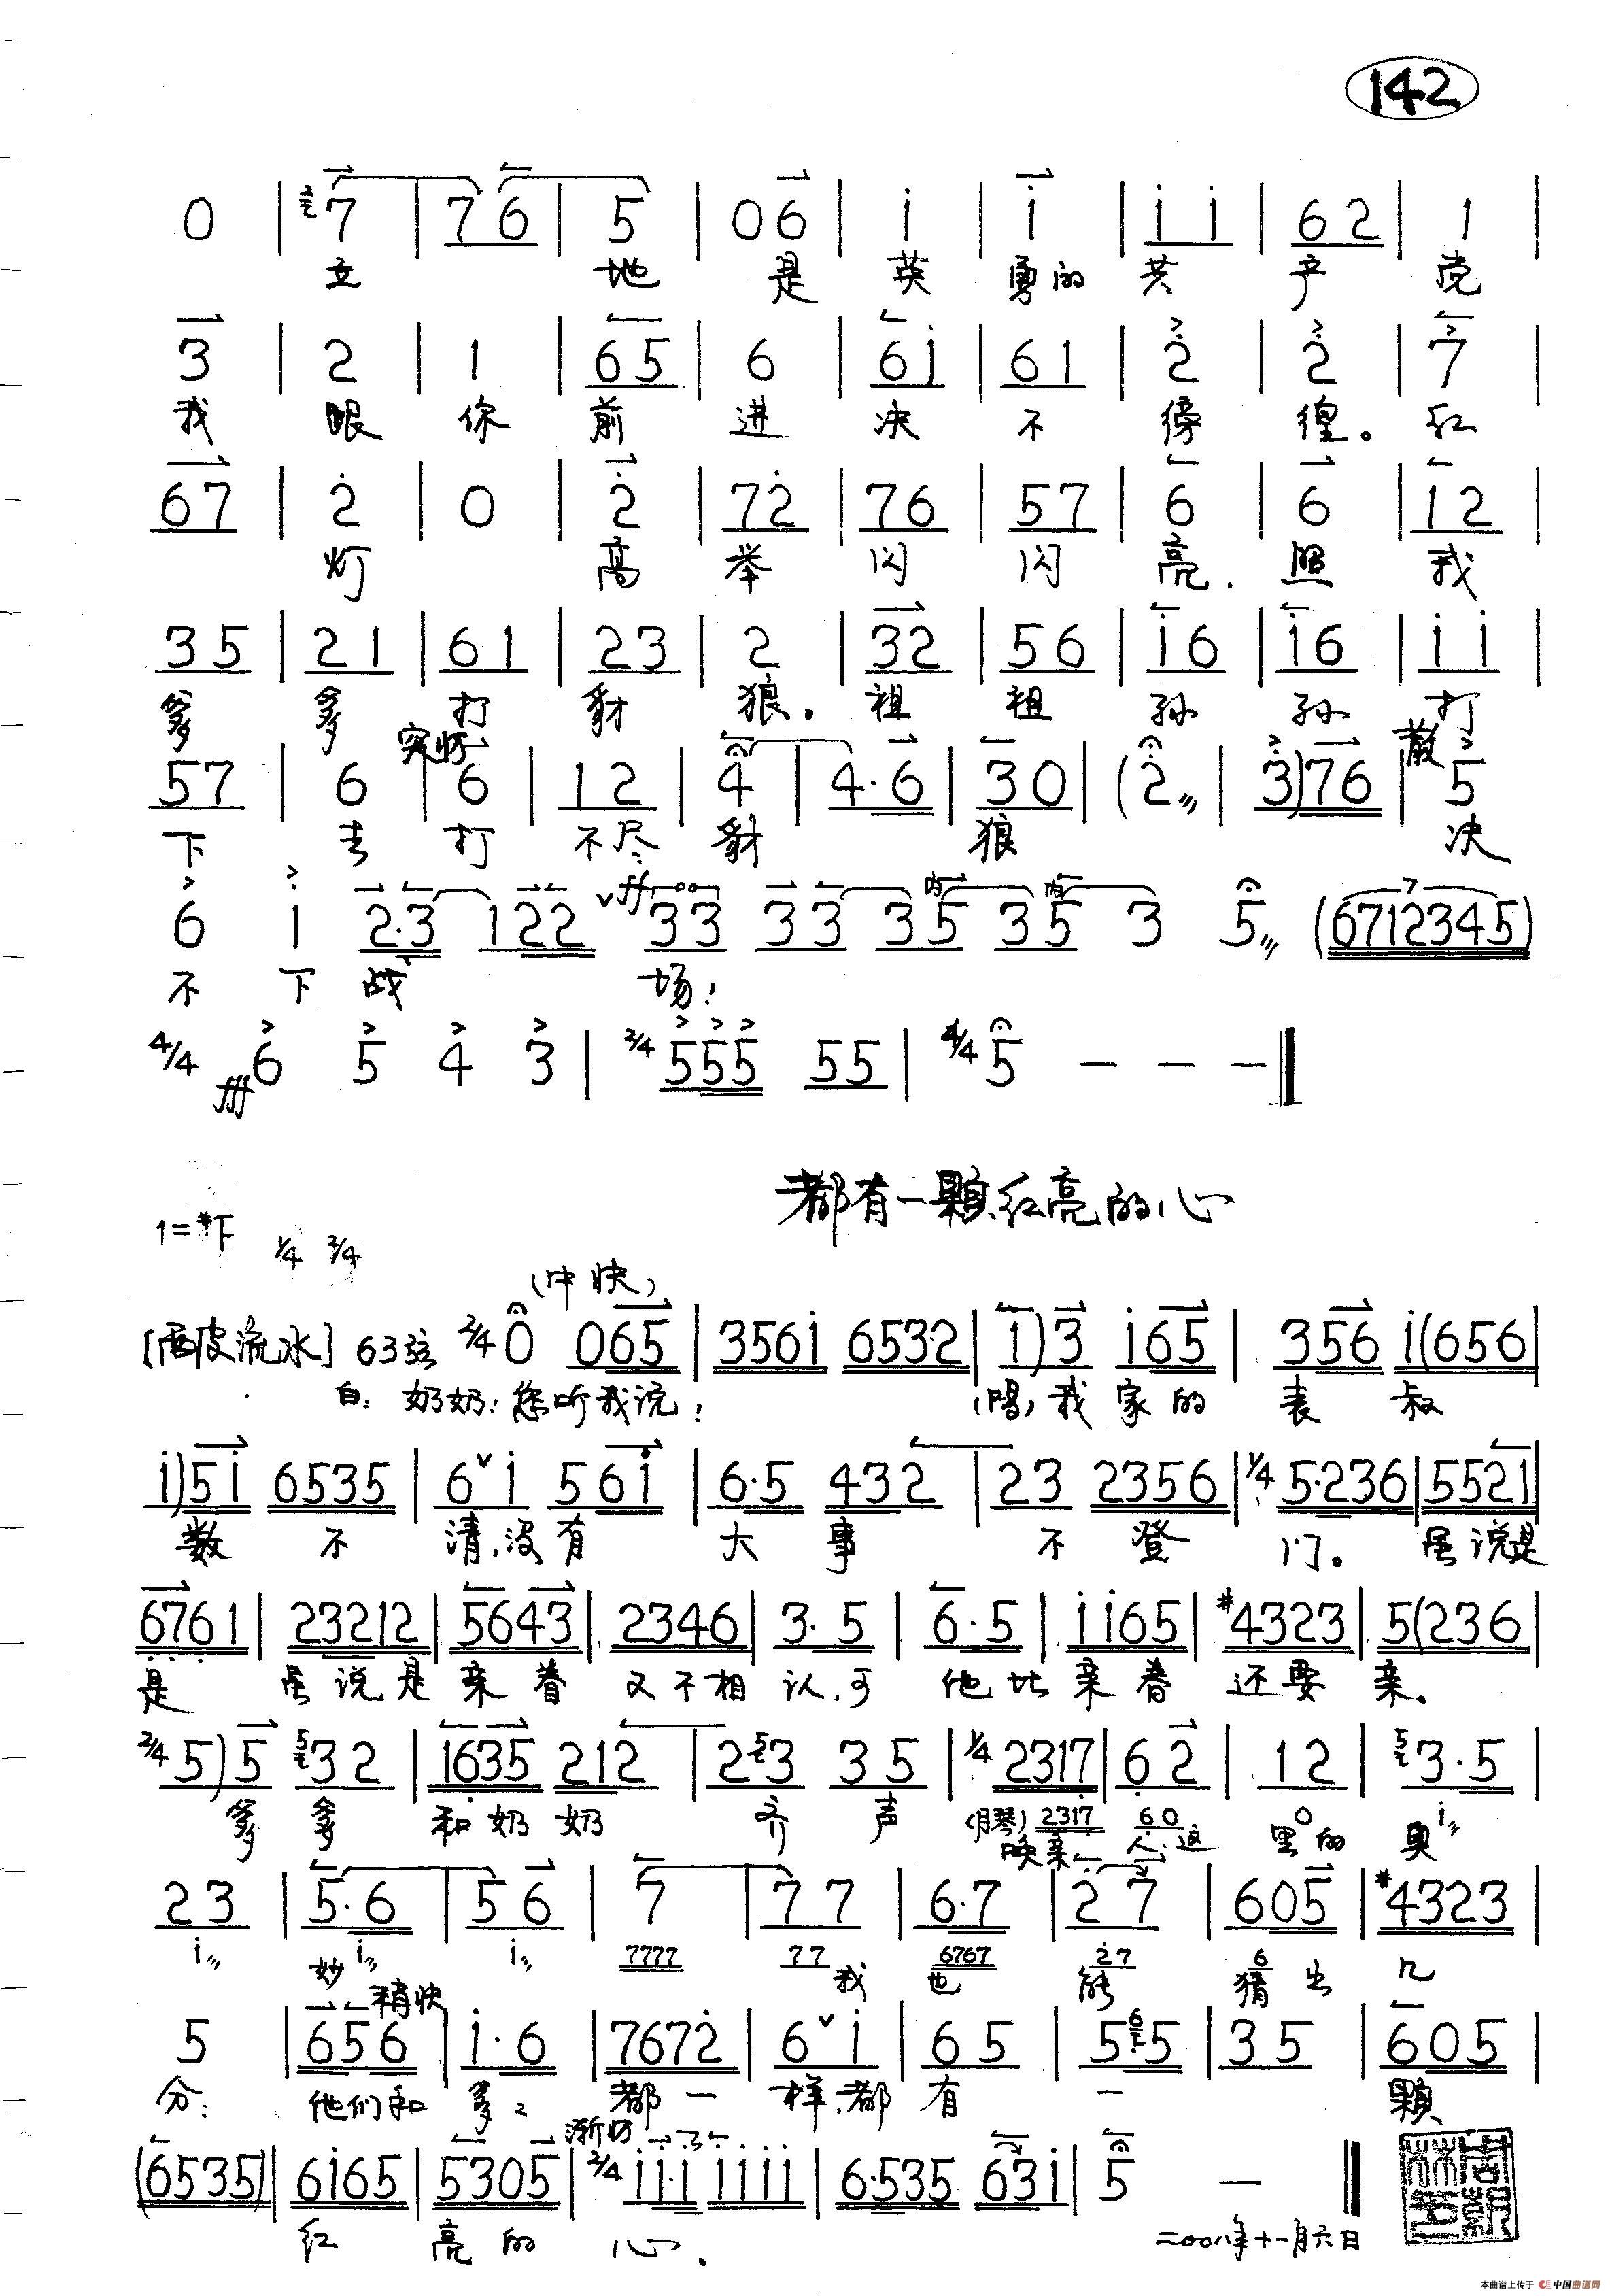 142
0 | 7 | 7 6 | 5 | 0 6 | i | i | i i | 6 2 | 1 |
立 地 是 英 勇的 共 产 党
3 | 2 | 1 | 6 5 | 6 | 6 i | 6 1 | 2 | 2 | 7 |
我 跟 你 前 进 决 不 徬 徨。 红
6 7 | 2 | 0 | 2 | 7 2 | 7 6 | 5 7 | 6 | 6 | 1 2 |
灯 高 举 闪 闪 亮. 照 我
3 5 | 2 1 | 6 1 | 2 3 | 2 | 3 2 | 5 6 | i 6 | i 6 | i i |
爹 爹 打 豺 狼. 祖 祖 孙 孙 打
突慢 散
5 7 | 6 | 6 | 1 2 | 4 | 4· 6 | 3 0 | ( 2 | 3 ) 7 6 | 5
下 去 打 不尽 豺 狼 决
6 i 2·3 1 2 2 ff 3 3 3 3 3 5 3 5 3 5 (6 7 1 2 3 4 5)
不 下 战 场!
4/4 fff 6 5 4 3 | 2/4 5 5 5 5 5 | 4/4 5 — — — ‖
都有一颗红亮的心
1=#F 1/4 2/4
(中快)
[西皮流水] 63弦 2/4 0 0 6 5 | 3 5 6 i 6 5 3 2 | i ) 3 i 6 5 | 3 5 6 i ( 6 5 6 |
白: 奶奶!您听我说! (唱)我 家 的 表 叔
i ) 5 i 6 5 3 5 | 6 i 5 6 i | 6·5 4 3 2 | 2 3 2 3 5 6 | 1/4 5·2 3 6 | 5 5 2 1 |
数 不 清,没 有 大 事 不 登 门。 虽 说是
6 7 6 1 | 2 3 2 1 2 | 5 6 4 3 | 2 3 4 6 | 3· 5 | 6· 5 | i i 6 5 | #4 3 2 3 | 5 ( 2 3 6 |
是 虽 说 是 亲 眷 又 不 相 认,可 他 比 亲 眷 还 要 亲。
2/4 5 ) 5 3 2 | 1 6 3 5 2 1 2 | 2 3 3 5 | 1/4 2 3 1 7 | 6 2 | 1 2 | 3· 5 |
爹 爹 和 奶 奶 齐 声
(月琴) 2317 60 0 i
唤亲 人,这 里 的 奥
2 3 | 5· 6 | 5 6 | 7 | 7 7 | 6· 7 | 2 7 | 6 0 5 | #4 3 2 3 |
i i i 7777 77 6767 27 6
妙 我 也 能 猜 出 几
稍快
5 | 6 5 6 | i· 6 | 7 6 7 2 | 6 i | 6 5 | 5 5 | 3 5 | 6 0 5 |
分: 他们和 爹 都 一 样,都 有 一 颗
渐慢
( 6 5 3 5 ) | 6 i 6 5 | 5 3 0 5 | 2/4 i i· i i i i i | 6·5 3 5 6 3 i | 5 — ‖
红 亮 的 心.
二00八年十一月六日
本曲谱上传于 中国曲谱网